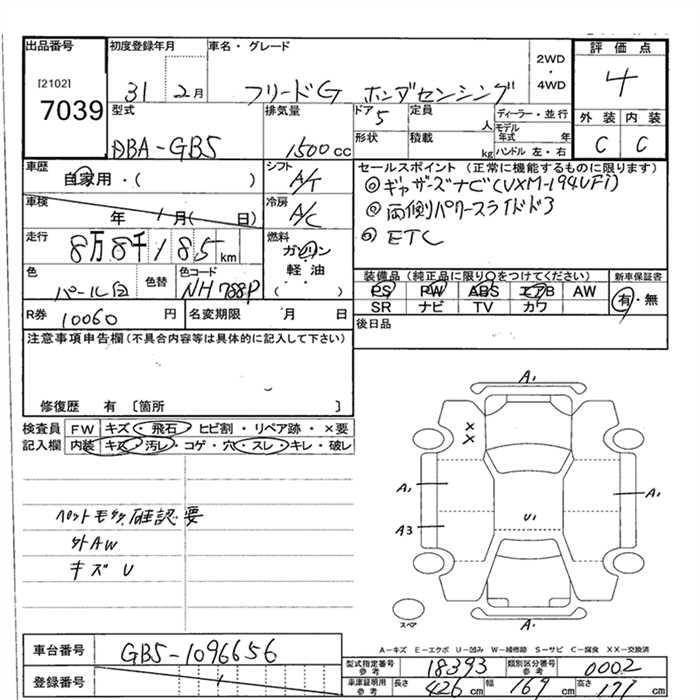 出品番号
[2102]
7039
初度登録年月
31 2月
車名・グレード
フリードG ホンダセンシング
2WD
・
4WD
評価点
4
外装 内装
C C
型式
DBA-GB5
排気量
1500cc
ドア
5
定員
人
形状
積載
kg
ディーラー・並行
モデル年式 年
ハンドル 左・右
車歴
自家用・( )
シフト
A/T
車検
年 1月( 日)
冷房
A/C
走行
8万8千185km
燃料
ガソリン
軽油
( )
色
パール白
色替
色コード
NH788P
R券
10060 円
名変期限 月 日
セールスポイント (正常に機能するものに限ります)
◎ギャザーズナビ(VXM-194VFi)
◎両側パワースライドドア
◎ETC
装備品 (純正品に限り○をつけてください)
新車保証書
PS PW ABS エアB AW
SR ナビ TV カワ
有・無
後日品
注意事項申告欄(不具合内容等は具体的に記入して下さい)
修復歴 有 〔箇所 〕
検査員 FW キズ・飛石・ヒビ割・リペア跡・×要
記入欄 内装 キズ・汚レ・コゲ・穴・スレ・キレ・破レ
確認要
外AW
キズU
A1
×
×
A1
A1
A3
U1
A1
スペア
A-キズ E-エクボ U-凹み W-補修跡 S-サビ C-腐食 XX-交換済
車台番号
GB5-1096656
登録番号
型式指定番号
参考
18393
類別区分番号
参考
0002
車庫証明用
参考
長さ 426cm 幅 169cm 高さ 171cm